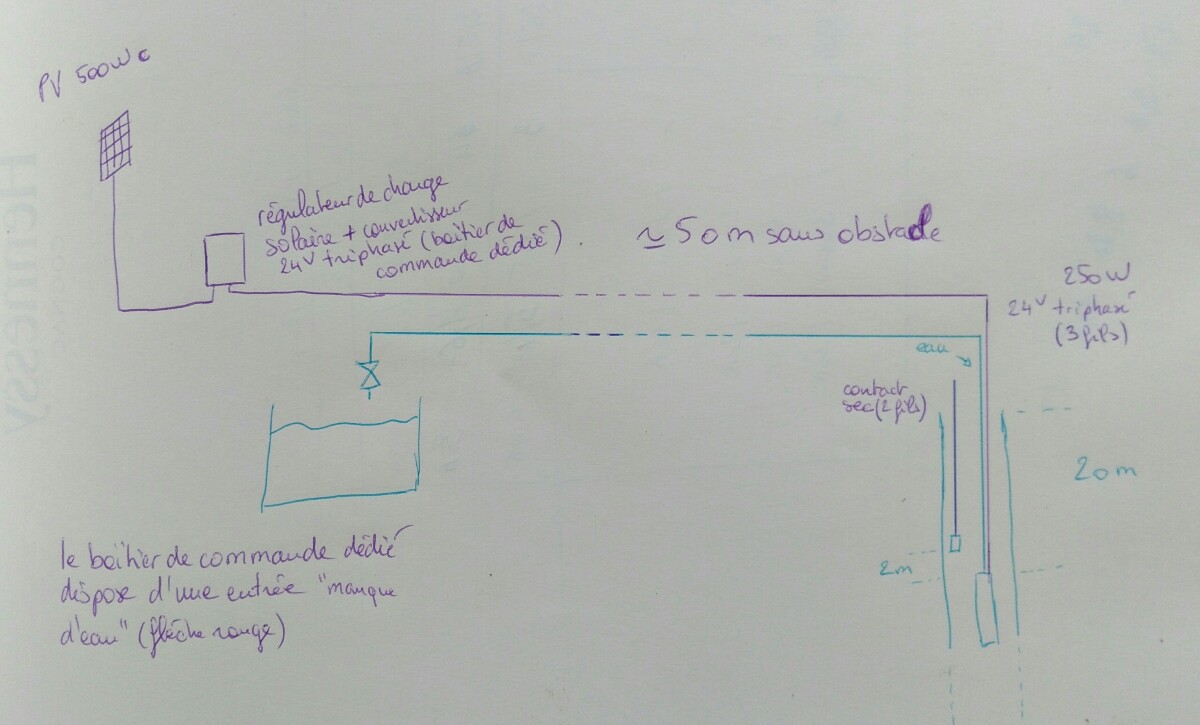 PV 500Wc
régulateur de charge
solaire + convertisseur
24V triphasé (boîtier de
commande dédié).
~ 50m sans obstacle
250W
24V triphasé
(3 fils)
eau
contact
sec (2 fils)
20m
2m
le boîtier de commande dédié
dispose d'une entrée "manque
d'eau" (flèche rouge)
Hennessy